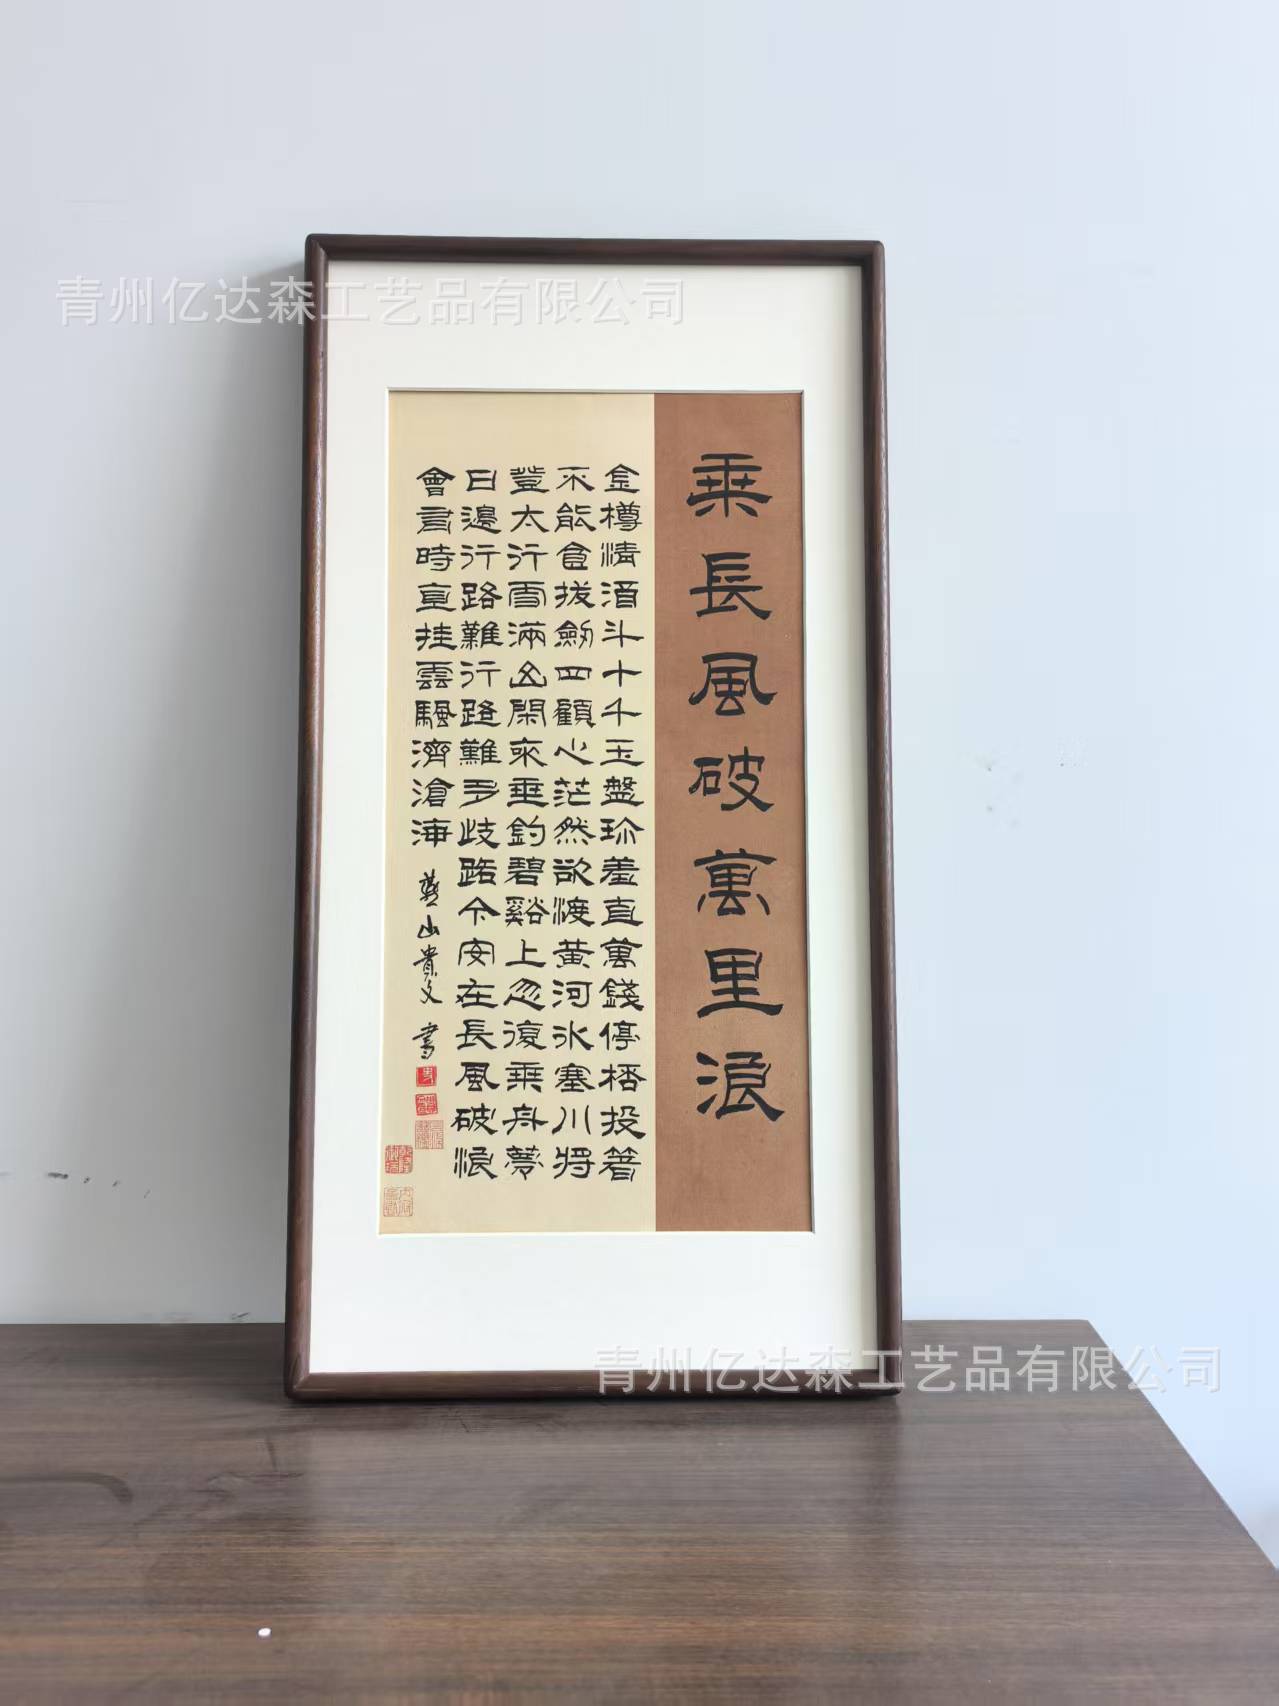 青州亿达森工艺品有限公司
乘長風破萬里浪
金樽清酒斗十千玉盤珎羞直萬錢停桮投箸
不能食拔劒四顧心茫然欲渡黃河氷塞川將
登太行雪滿山閑來垂釣碧谿上忽復乘舟夢
日邊行路難行路難多歧路今安在長風破浪
會有時直挂雲驪濟滄海
燕山貴文書
青州亿达森工艺品有限公司